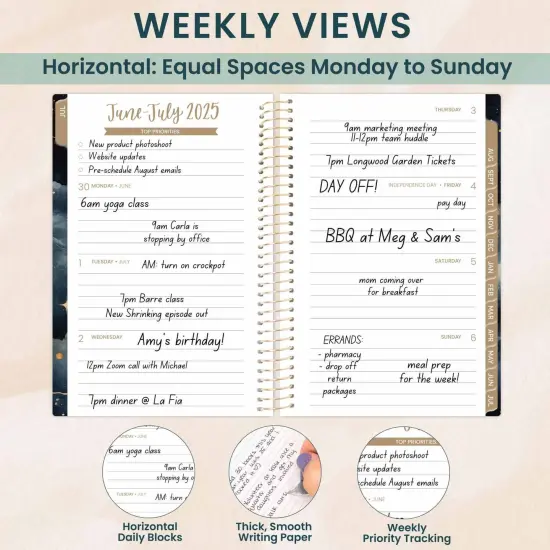 WEEKLY VIEWS
Horizontal: Equal Spaces Monday to Sunday
JUL
June-July 2025
TOP PRIORITIES
New product photoshoot
Website updates
Pre-schedule August emails
30 MONDAY • JUNE
6am yoga class
9am Carla is
stopping by office
1 TUESDAY • JULY
AM: turn on crockpot
7pm Barre class
New Shrinking episode out
2 WEDNESDAY
Amy's birthday!
12pm Zoom call with Michael
7pm dinner @ La Fia
THURSDAY 3
9am marketing meeting
11-12pm team huddle
7pm Longwood Garden Tickets
DAY OFF!
INDEPENDENCE DAY • FRIDAY 4
pay day
BBQ at Meg & Sam's
SATURDAY 5
mom coming over
for breakfast
SUNDAY 6
ERRANDS:
- pharmacy
- drop off
return
packages
meal prep
for the week!
AUG
SEPT
OCT
NOV
DEC
JAN
FEB
MAR
APR
MAY
JUN
JUL
6am yoga class
9am Carla
stopping by o
TUESDAY • JULY
AM: turn
TOP PRIORITIES
product photoshoot
site updates
chedule August emails
• JUNE
Horizontal
Daily Blocks
Thick, Smooth
Writing Paper
Weekly
Priority Tracking